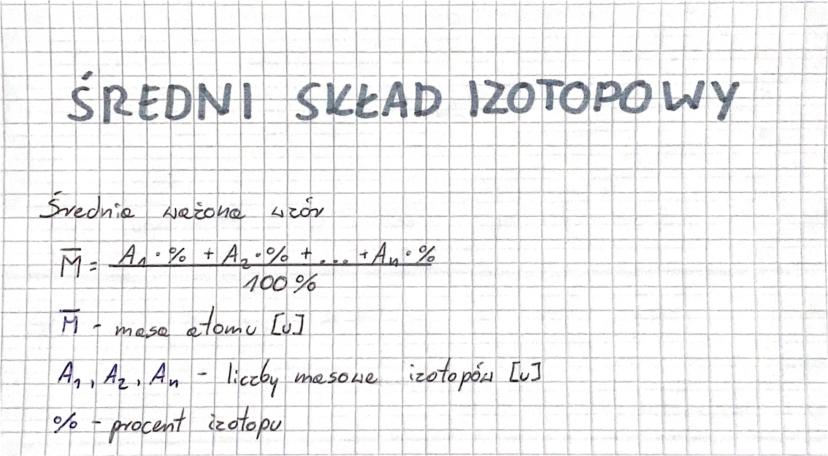 ŚREDNI SKŁAD IZOTOPOWY
Średnia ważona wzór
M̅ = A₁·% + A₂·% + ... + Aₙ·%
100%
M̅ - masa atomu [u]
A₁, A₂, Aₙ - liczby masowe izotopów [u]
% - procent izotopu